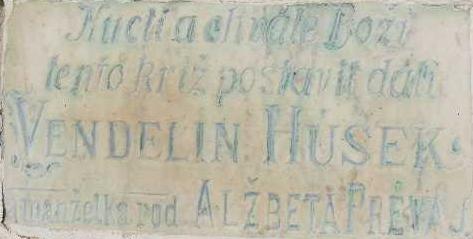 Kucti a chvále Boží
tento kríž postavit dali
VENDELIN HÚSEK
manželka rod. ALŽBETA